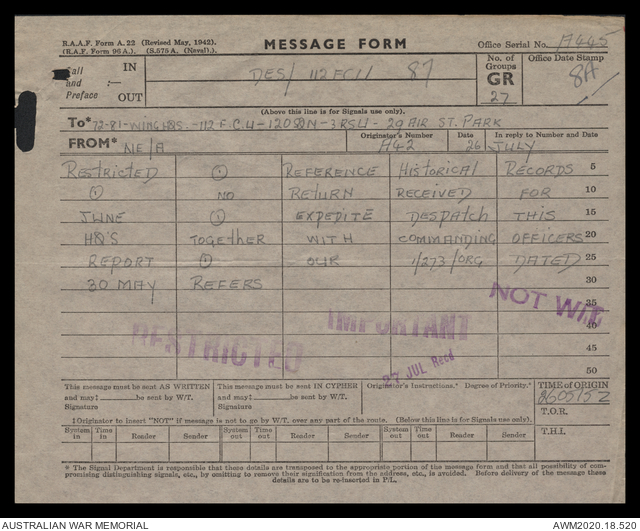 R.A.A.F. Form A.22 (Revised May, 1942).
(R.A.F. Form 96A.) (S.575 A. (Naval).).
MESSAGE FORM
Office Serial No. A445
Call IN
and :—
Preface OUT
DES/ 112FCU 87
No. of Groups
GR
27
Office Date Stamp
8A
(Above this line is for Signals use only).
To* 72-81-WINGHQS.-112-F.C.U-120SQN-3RSU-29 AIR ST. PARK
FROM* NE/A
Originator's Number
A42
Date
26
In reply to Number and Date
JULY
RESTRICTED (1) REFERENCE HISTORICAL RECORDS 5
(1) NO RETURN RECEIVED FOR 10
JUNE (1) EXPEDITE DESPATCH THIS 15
HQ'S TOGETHER WITH COMMANDING OFFICERS 20
REPORT (1) OUR 1/273/ORG DATED 25
30 MAY REFERS 30
NOT W/T 35
RESTRICTED IMPORTANT 40
45
27 JUL Recd 50
This message must be sent AS WRITTEN
and may! be sent by W.T.
Signature
This message must be sent IN CYPHER
and may! be sent by W.T.
Signature
Originator's Instructions.* Degree of Priority.*
TIME of ORIGIN
260515Z
T.O.R.
T.H.I.
‡Originator to insert "NOT" if message is not to go by W/T. over any part of the route. (Below this line is for Signals use only).
System in Time in Reader Sender System out Time out Reader Sender System out Time out Reader Sender
* The Signal Department is responsible that these details are transposed to the appropriate portion of the message form and that all possibility of compromising distinguishing signals, etc., by omitting to remove their signification from the address, etc., is avoided. Before delivery of the message these details are to be re-inserted in P/L.
AUSTRALIAN WAR MEMORIAL
AWM2020.18.520